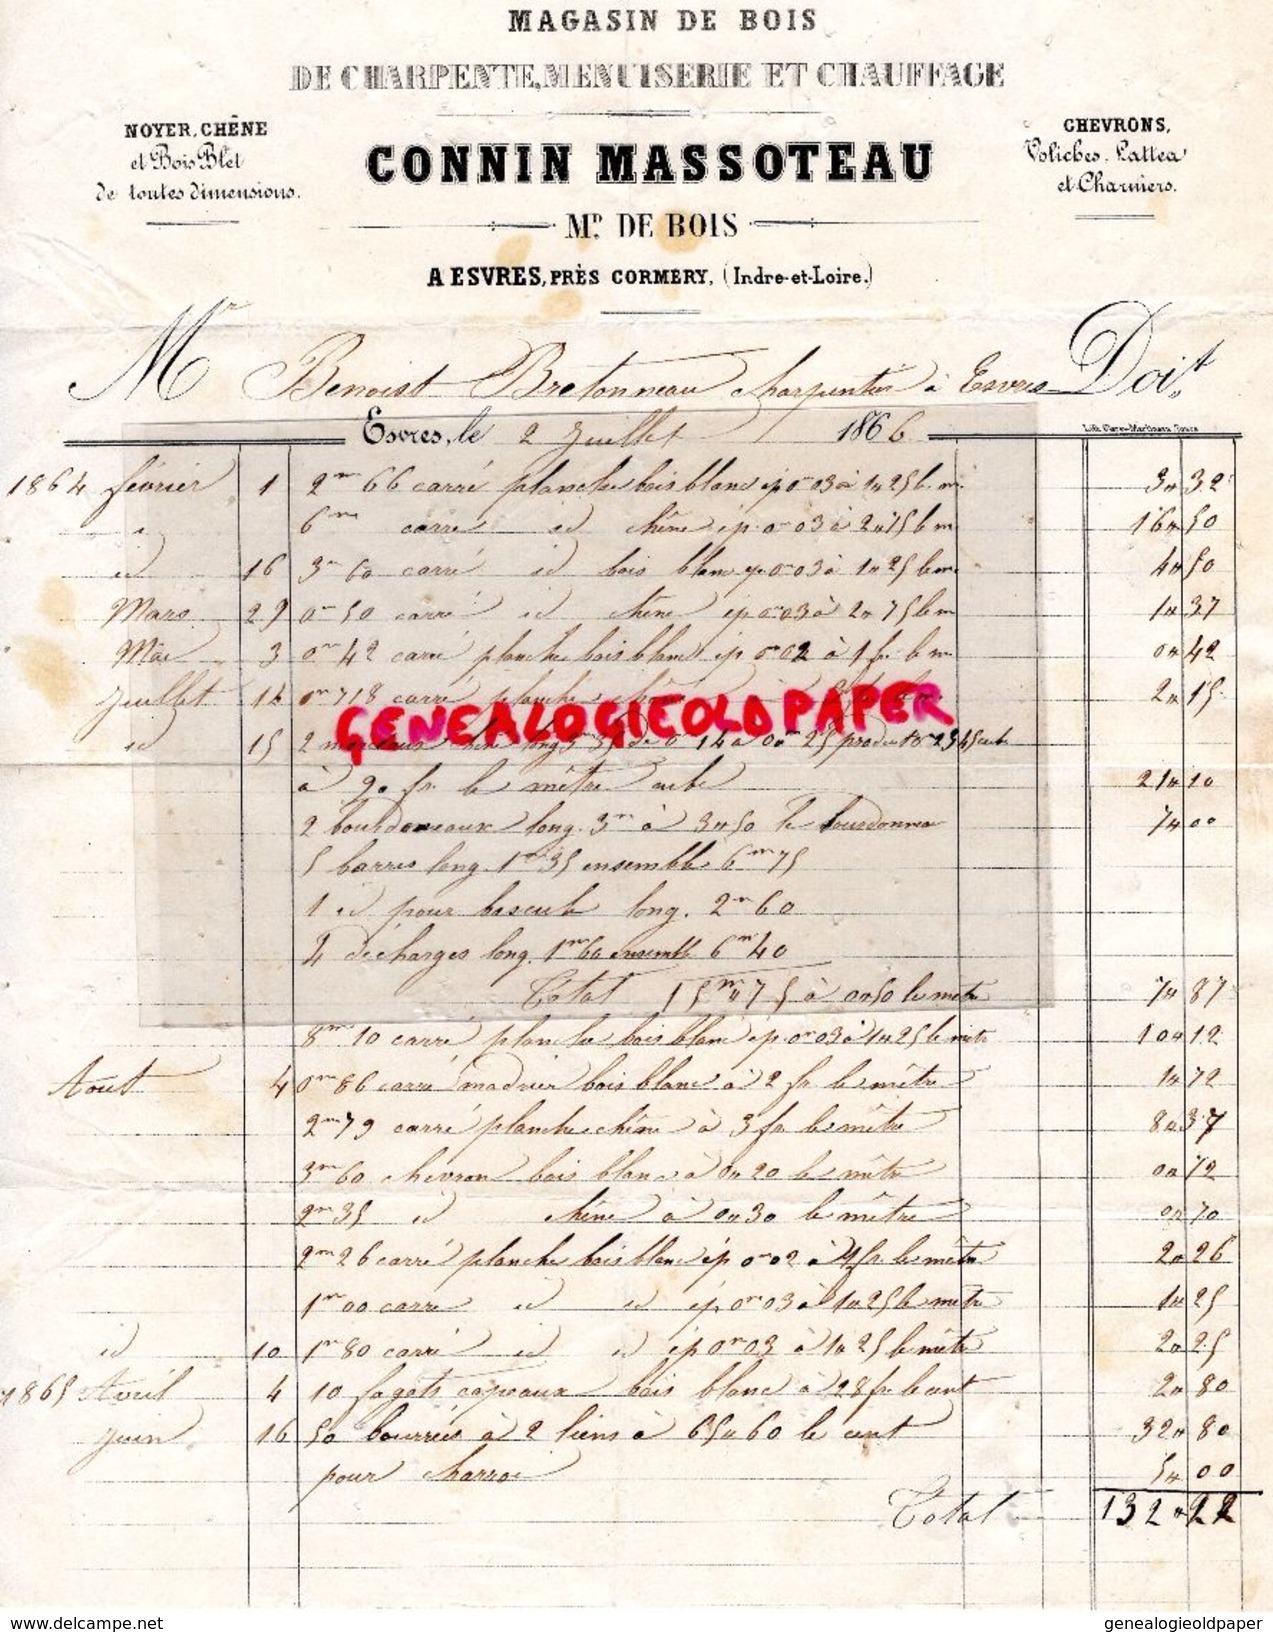 MAGASIN DE BOIS
DE CHARPENTE, MENUISERIE ET CHAUFFAGE
NOYER, CHÊNE
et Bois Blet
de toutes dimensions.
CHEVRONS,
Voliches, Lattea
et Charniers.
CONNIN MASSOTEAU
Md. DE BOIS
A ESVRES, PRÈS CORMERY, (Indre-et-Loire.)
Mr Benoist Bretonneau charpentier à Esvres Doit.
Esvres, le 2 Juillet 1866
1864 février 1 2m 66 carré planche bois blanc ép 0m 03 à 1"25 le m. 3" 32
id 6m carré id chêne ép. 0m 03 à 2"75 le m 16" 50
id 16 3m 60 carré id bois blanc ép 0m 03 à 1"25 le m. 4" 50
Mars 29 0m 50 carré id chêne ép 0m 03 à 2"75 le m 1" 37
Mai 3 0m 42 carré planche bois blanc ép 0m 02 à 1 fr. le m 0" 42
Juillet 14 0m 718 carré planche chêne 2" 15
id 15 2 chêne long 3m 35 de 0m 14 à 0m 25 produit
à 90 fr. le mètre cube 21" 10
2 bourdonneaux long. 3m à 3"50 le bourdonneau 7" 00
5 barres long. 1m 35 ensemble 6m 75
1 id pour bascule long. 2m 60
4 décharges long. 1m 60 ensemble 6m 40
Total 15m 75 à 0"50 le mètre 7" 87
8m 10 carré planche bois blanc ép. 0m 03 à 1"25 le mètre 10" 12
Aout 4 0m 86 carré madrier bois blanc à 2 fr. le mètre 1" 72
2m 79 carré planche chêne à 3 fr. le mètre 8" 37
3m 60 chevron bois blanc à 0"20 le mètre 0" 72
2m 35 id chêne à 0"30 le mètre 0" 70
2m 26 carré planche bois blanc ép 0m 02 à 1 fr. le mètre 2" 26
1m 00 carré id id ép. 0m 03 à 1"25 le mètre 1" 25
id 10 1m 80 carré id id ép 0m 03 à 1"25 le mètre 2" 25
1865 Avril 4 10 fagots copeaux bois blanc à 28 fr. le cent 2" 80
Juin 16 50 bourrées à 2 liens à 65"60 le cent 32" 80
pour charroi 5" 00
Total 132" 22
GENEALOGIEOLDPAPER
www.delcampe.net
genealogieoldpaper